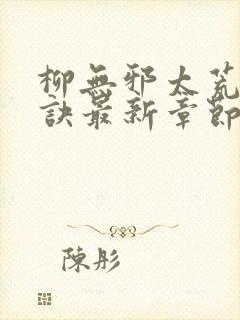 柳無邪太荒
訣最新章節
陳彤